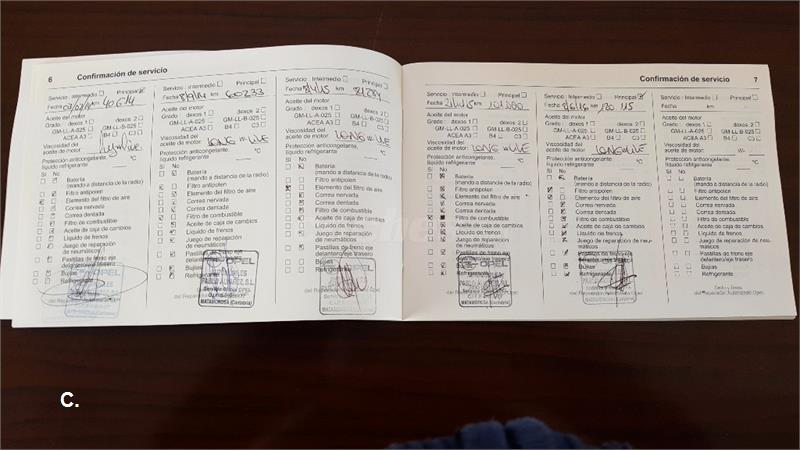 6
Confirmación de servicio
Servicio: Intermedio Principal
Fecha km 40614
Aceite del motor
Grado: dexos 1 dexos 2
GM-LL-A-025 GM-LL-B-025
ACEA A3 B4 C3
Viscosidad del
aceite de motor
Protección anticongelante,
líquido refrigerante °C
Sí No
Batería
(mando a distancia de la radio)
Filtro antipolen
Elemento del filtro de aire
Correa nervada
Correa dentada
Filtro de combustible
Aceite de caja de cambios
Líquido de frenos
Juego de reparación
de neumáticos
Pastillas de freno eje
delantero/eje trasero
Bujías
Refrigerante
Servicio: Intermedio Principal
Fecha km 60233
Aceite del motor
Grado: dexos 1 dexos 2
GM-LL-A-025 GM-LL-B-025
ACEA A3 B4 C3
Viscosidad del
aceite de motor LONG
Protección anticongelante,
líquido refrigerante °C
Sí No
Batería
(mando a distancia de la radio)
Filtro antipolen
Elemento del filtro de aire
Correa nervada
Correa dentada
Filtro de combustible
Aceite de caja de cambios
Líquido de frenos
Juego de reparación
de neumáticos
Pastillas de freno eje
delantero/eje trasero
Bujías
Refrigerante
OPEL
MATAMOROSA (Cantabria)
Servicio: Intermedio Principal
Fecha km
Aceite del motor
Grado: dexos 1 dexos 2
GM-LL-A-025 GM-LL-B-025
ACEA A3 B4 C3
Viscosidad del
aceite de motor LONG
Protección anticongelante,
líquido refrigerante °C
Sí No
Batería
(mando a distancia de la radio)
Filtro antipolen
Elemento del filtro de aire
Correa nervada
Correa dentada
Filtro de combustible
Aceite de caja de cambios
Líquido de frenos
Juego de reparación
de neumáticos
Pastillas de freno eje
delantero/eje trasero
Bujías
Refrigerante
OPEL
Confirmación de servicio
7
Servicio: Intermedio Principal
Fecha km
Aceite del motor
Grado: dexos 1 dexos 2
GM-LL-A-025 GM-LL-B-025
ACEA A3 B4 C3
Viscosidad del
aceite de motor LONG
Protección anticongelante,
líquido refrigerante °C
Sí No
Batería
(mando a distancia de la radio)
Filtro antipolen
Elemento del filtro de aire
Correa nervada
Correa dentada
Filtro de combustible
Aceite de caja de cambios
Líquido de frenos
Juego de reparación
de neumáticos
Pastillas de freno eje
delantero/eje trasero
Bujías
Refrigerante
OPEL
Servicio: Intermedio Principal
Fecha km 120 115
Aceite del motor
Grado: dexos 1 dexos 2
GM-LL-A-025 GM-LL-B-025
ACEA A3 B4 C3
Viscosidad del
aceite de motor LONG
Protección anticongelante,
líquido refrigerante °C
Sí No
Batería
(mando a distancia de la radio)
Filtro antipolen
Elemento del filtro de aire
Correa nervada
Correa dentada
Filtro de combustible
Aceite de caja de cambios
Líquido de frenos
Juego de reparación de neu-
máticos
Pastillas de freno eje
delantero/eje trasero
Bujías
Refrigerante
Servicio: Intermedio Principal
Fecha km
Aceite del motor
Grado: dexos 1 dexos 2
GM-LL-A-025 GM-LL-B-025
ACEA A3 B4 C3
Viscosidad del
aceite de motor
Protección anticongelante,
líquido refrigerante °C
Sí No
Batería
(mando a distancia de la radio)
Filtro antipolen
Elemento del filtro de aire
Correa nervada
Correa dentada
Filtro de combustible
Aceite de caja de cambios
Líquido de frenos
Juego de reparación de neu-
máticos
Pastillas de freno eje
delantero/eje trasero
Bujías
Refrigerante
Sello y firma
del Reparador Autorizado Opel
C.